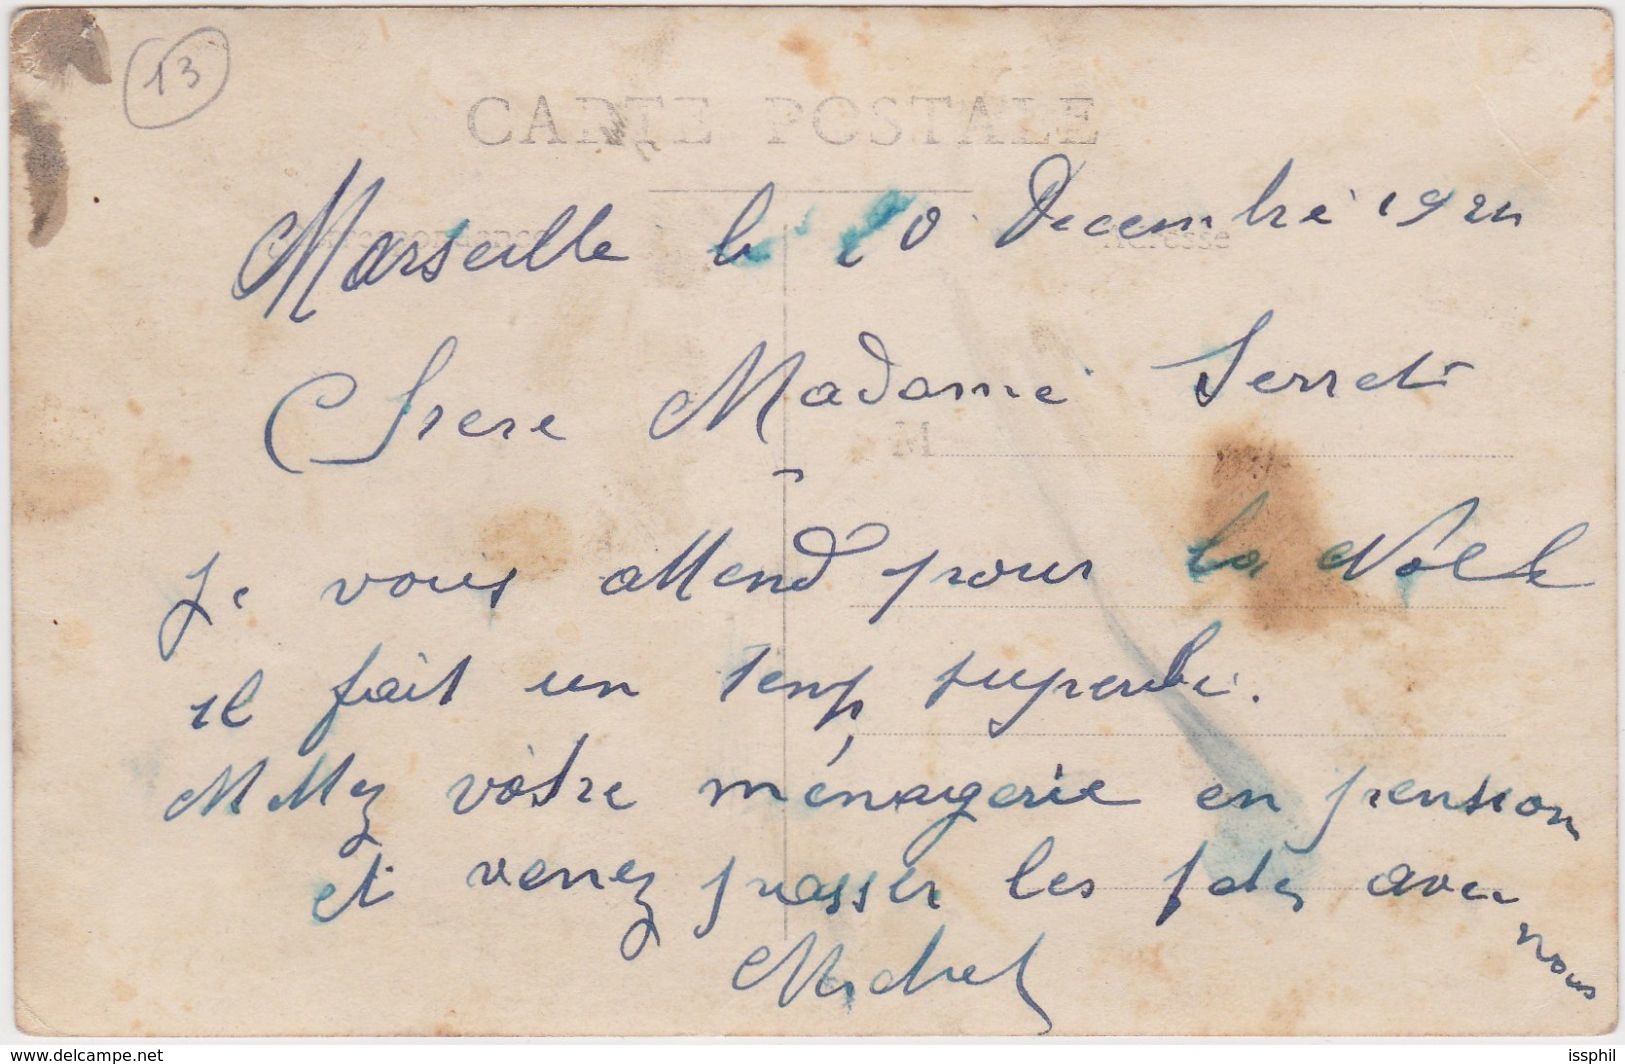 13
CARTE POSTALE
Correspondance
Adresse
Marseille le 20 Decembre 1924
Chere Madame Serret
M
Je vous attend pour la Noëlle
il fait un temps superbe.
Mettez vôtre ménagerie en pension
et venez passer les fetes avec
nous
Michel
www.delcampe.net
issphil